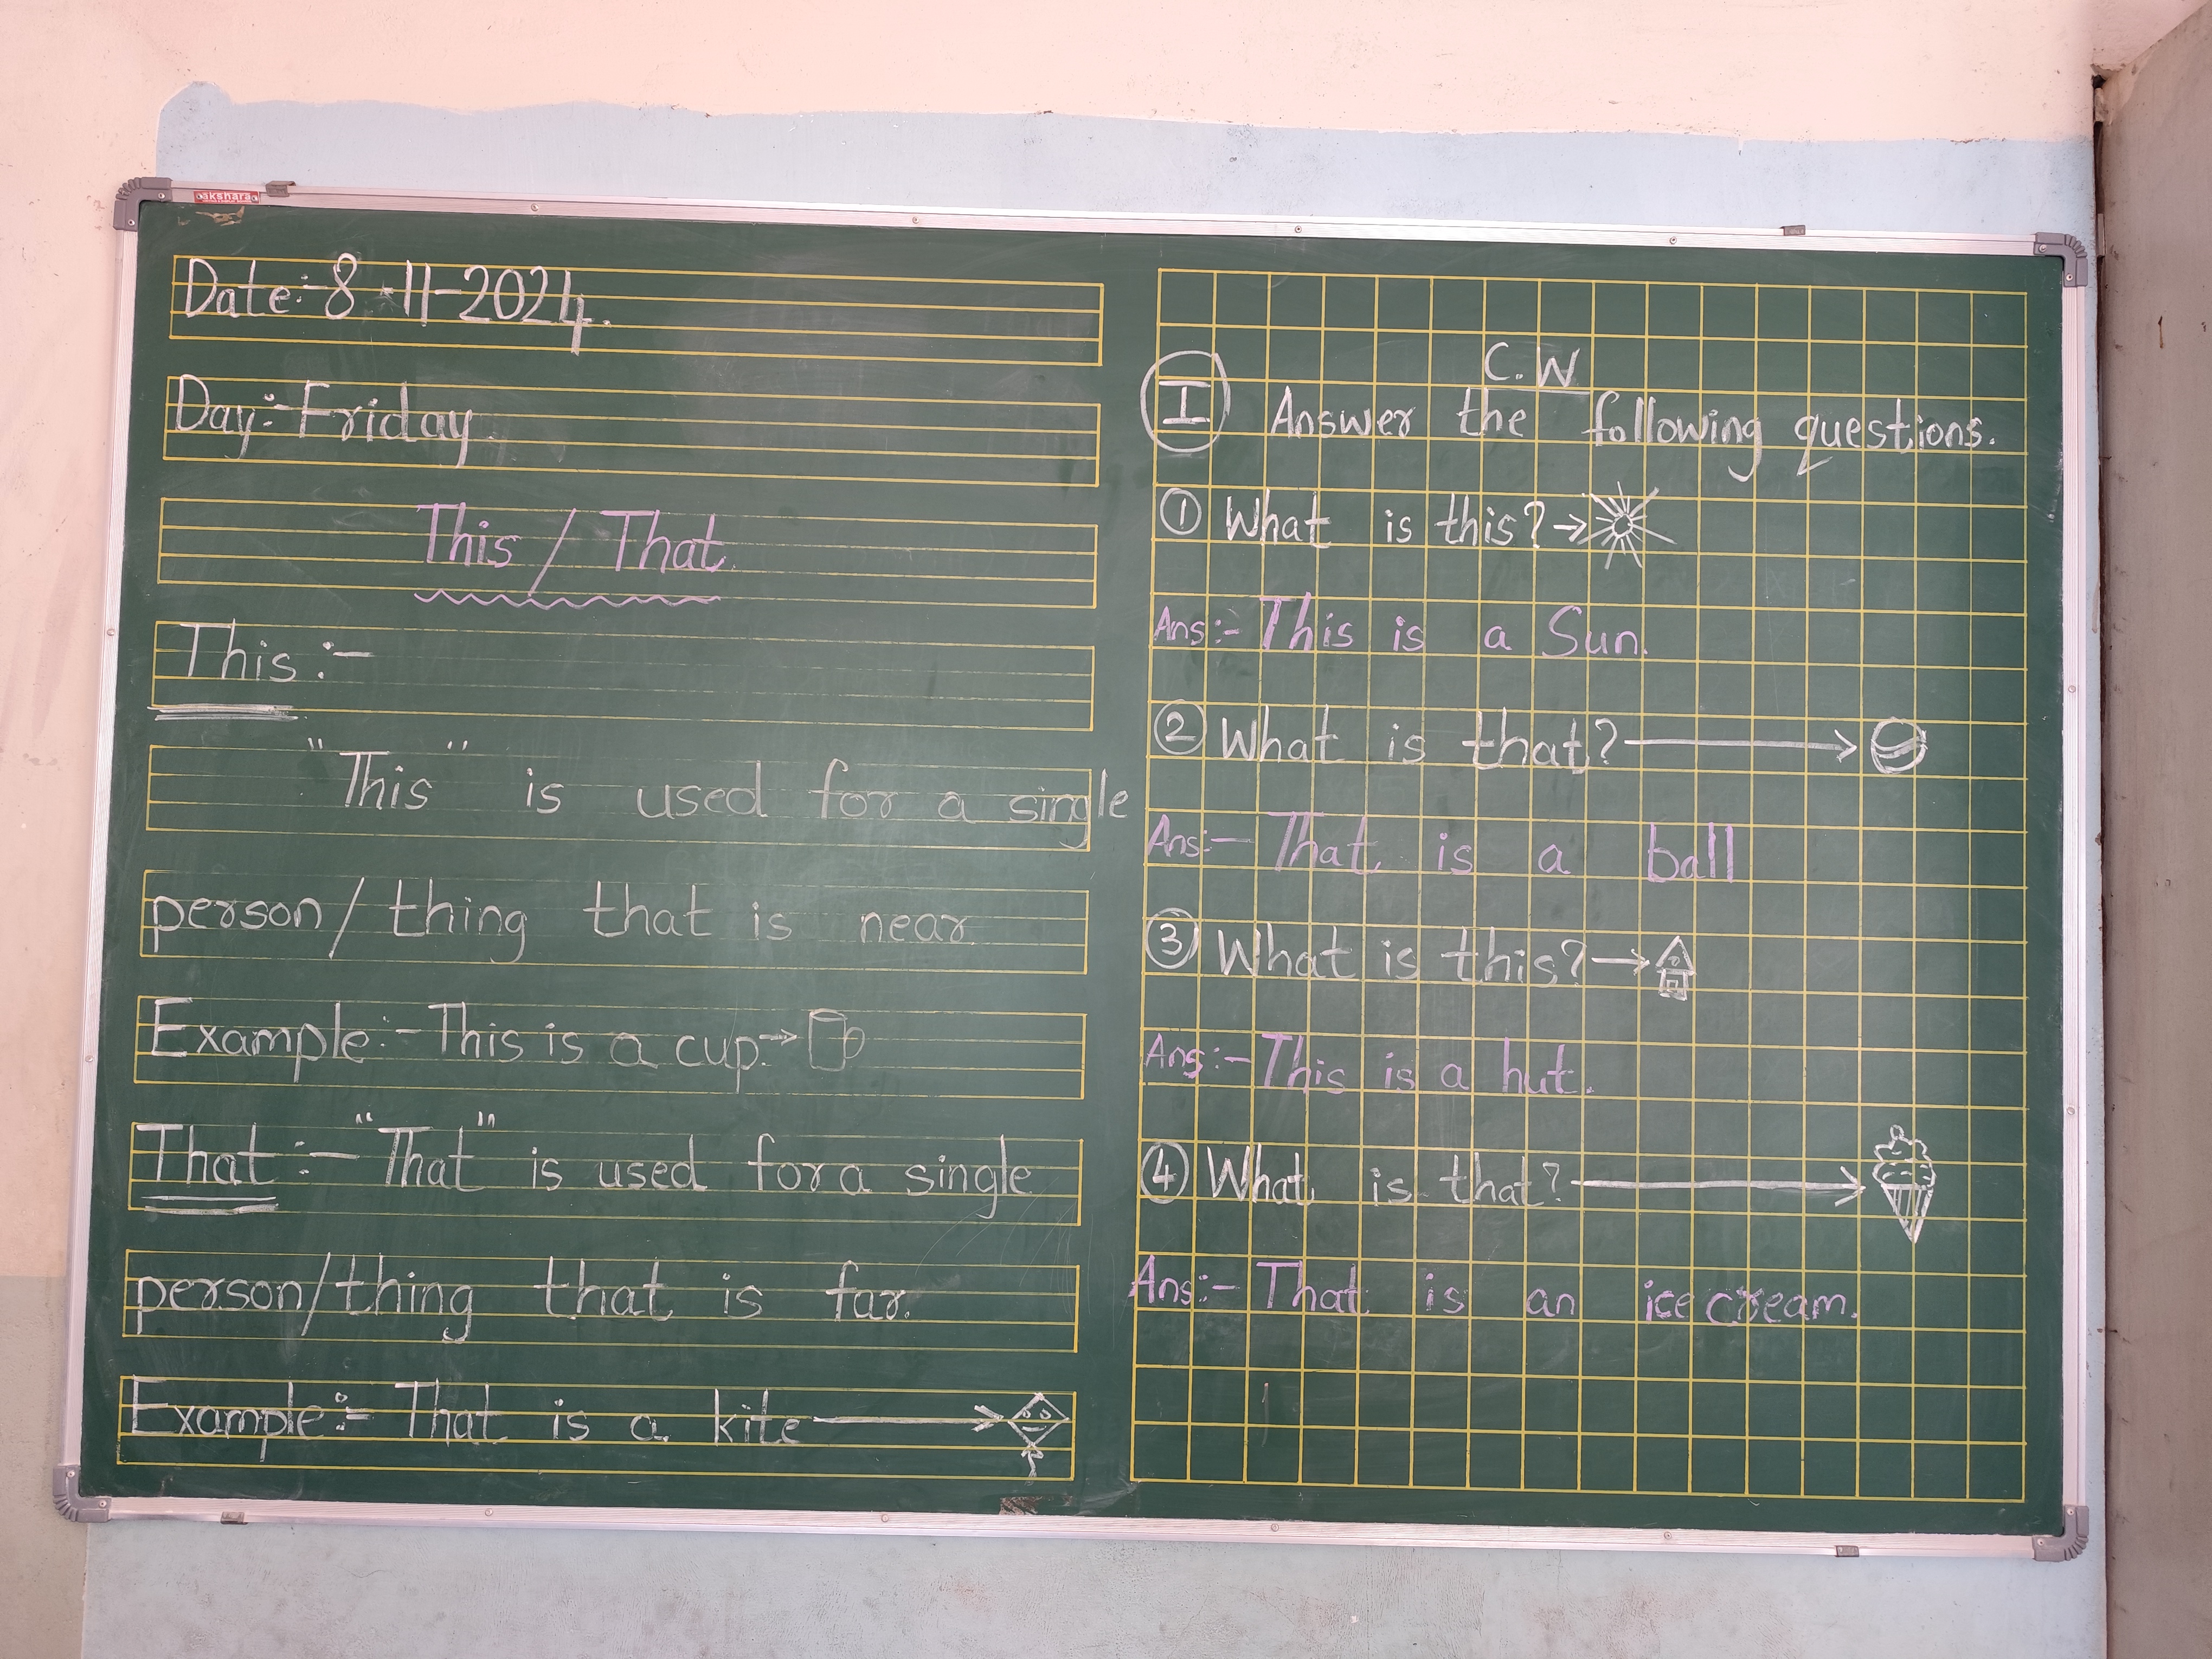 akshara
Date:-8-11-2024.
Day:-Friday
This / That
This:-
"This" is used for a single
person/ thing that is near
Example:-This is a cup.→
That:-"That" is used for a single
person/thing that is far.
Example:- That is a kite
C.W
I Answer the following questions.
① What is this?→
Ans:-This is a Sun.
② What is that?→
Ans:- That is a ball
③ What is this?→
Ans:-This is a hut.
④ What is that?→
Ans:- That is an ice cream.